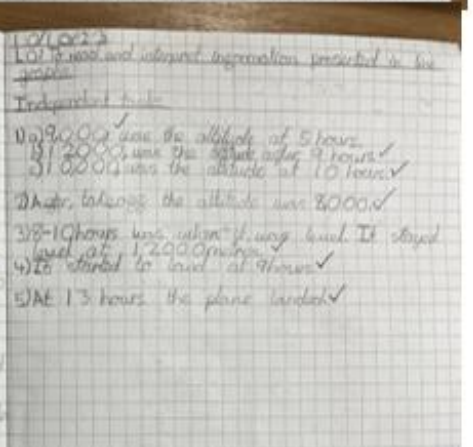 LO: To read and interpret information presented in line
graphs
Independent task
1) a) 9000 was the altitude at 5 hours
b) 12000 was the altitude after 9 hours
c) 10,000 was the altitude at 10 hours
2) After takeoff the altitude was 8000.
3) 8-10 hours was when it was level. It stayed
level at 12000
4) It started to land at 9 hours
5) At 13 hours the plane landed